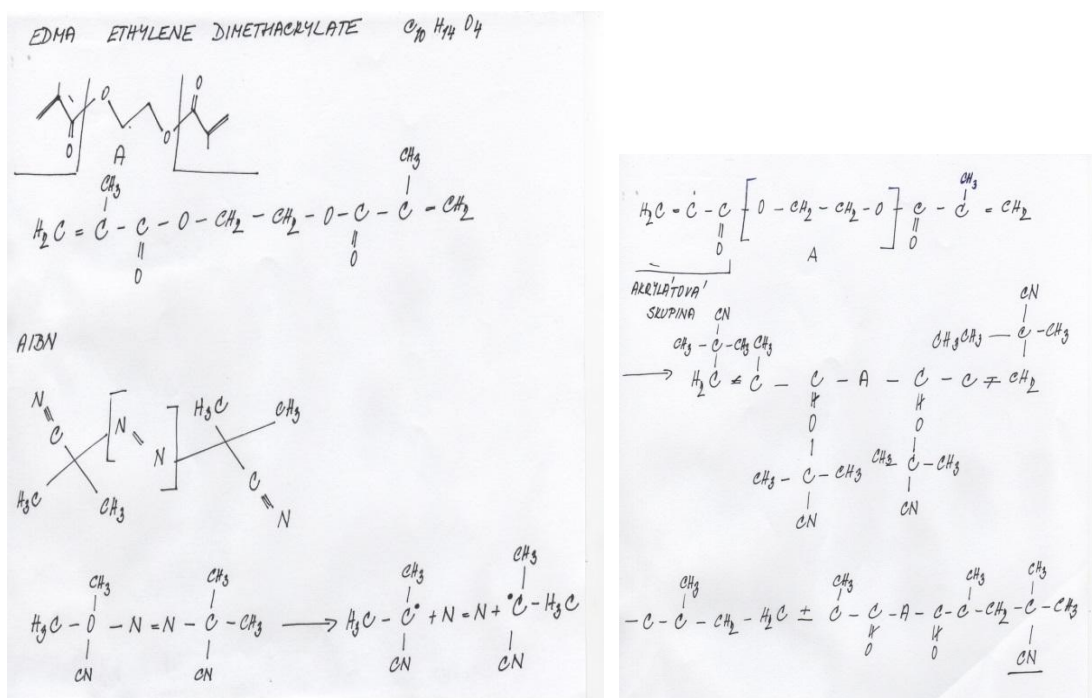 EDMA ETHYLENE DIMETHACRYLATE C10 H14 O4
O O
O O
A
CH3 CH3
H2C = C - C - O - CH2 - CH2 - O - C - C - CH2
O O
AIBN
N H3C CH3
C [ N = N ]
H3C CH3 C ≡ N
CH3 CH3 CH3 CH3
H3C - C - N = N - C - CH3 → H3C - C• + N = N + •C - H3C
CN CN CN CN
CH3
H2C = C - C [ O - CH2 - CH2 - O ] C - C = CH2
O A O
AKRYLÁTOVÁ
SKUPINA
CN CN
CH3 - C - CH3 CH3 CH3 CH3 — C - CH3
→ H2C = C - C - A - C - C = CH2
O O
CH3 - C - CH3 CH3 C - CH3
CN CN
CH3 CH3 CH3 CH3
- C - C - CH2 - H2C ± C - C - A - C - C - CH2 - C - CH3
O O CN